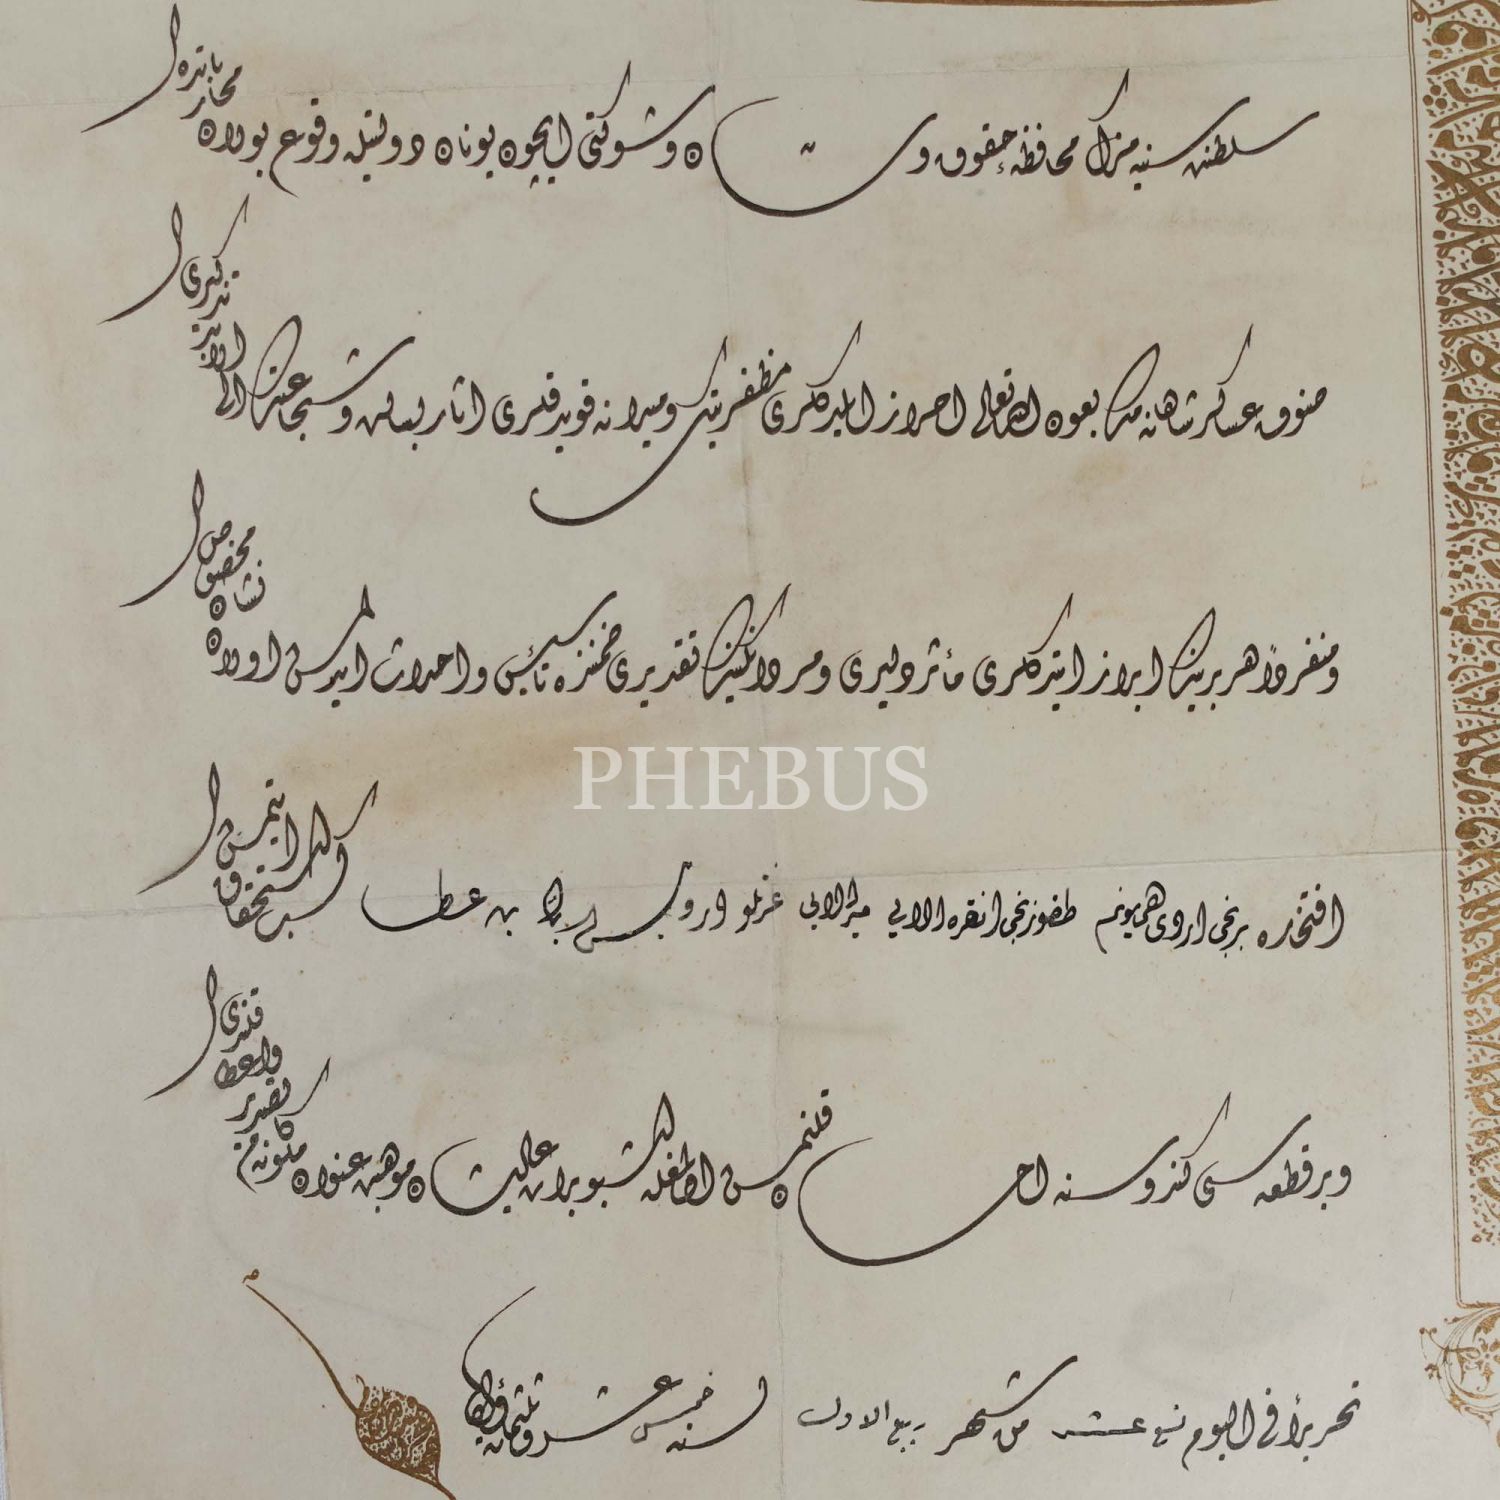 سلطنت سنیه مزك محافظهٔ حقوق و شان و شوکتی ایچون یونان دولتیله وقوع بولان محاربه‌ده
صنوف عساکر شاهانه‌مك بعون الله تعالی احراز ایلدکلری مظفریتك و میدانه قویدقلری اثار بسالت و شجاعتك الی الابد تذکیری
و منفرداً هر برینك ابراز ایتدکلری مآثر دلیری و مردانکینك تقدیری ضمننده تأسیس و احداث ایدلمش اولان نشان مخصوص
افتخارده برنجی اردوی همایونم طقوزنجی انقره الایی میرالایی عزتلو بك عطا کسب استحقاق ایتمش
PHEBUS
و بر قطعه‌سی کندوسنه احسان قلنمش اولمغله اشبو برات عالیشان موهبت عنوان ملوکانه‌م تصدیر و اعطا قلندی
تحریراً فی الیوم تسع عشر من شهر ربیع الاول لسنه خمس عشر و ثلثمائه و الف